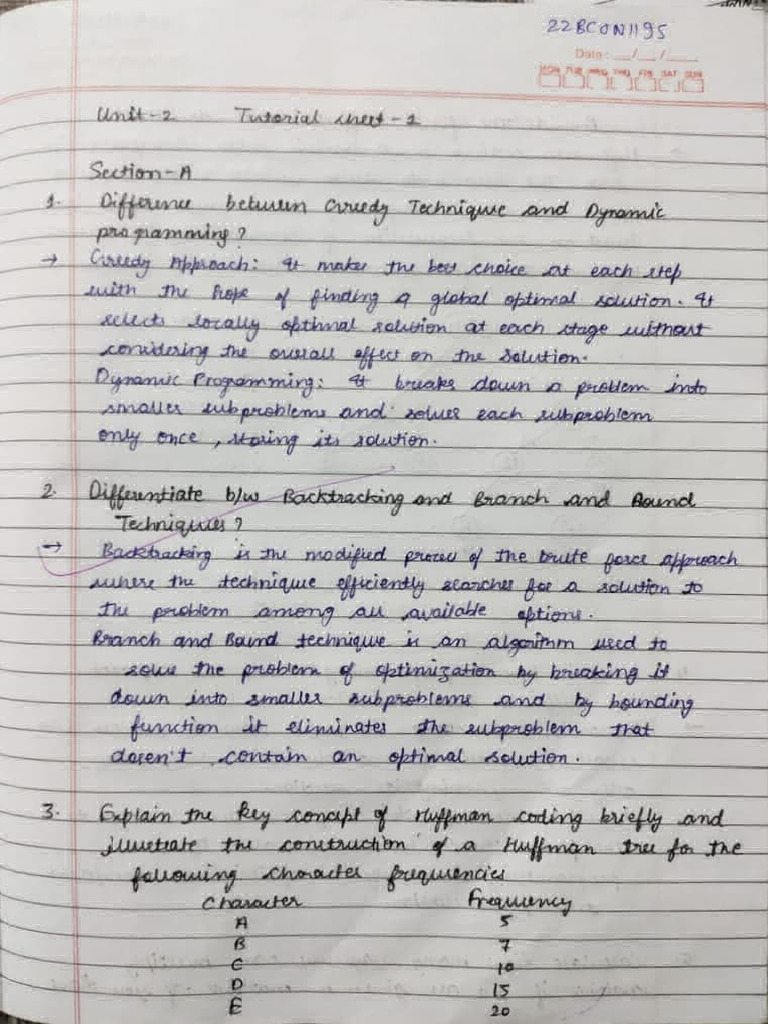 22BCON1195
Date: __/__/__
MON TUE WED THU FRI SAT SUN
Unit-2 Tutorial sheet-1
Section-A
1. Difference between Greedy Technique and Dynamic
programming?
→ Greedy Approach: It makes the best choice at each step
with the hope of finding a global optimal solution. It
selects locally optimal solution at each stage without
considering the overall effect on the solution.
Dynamic Programming: It breaks down a problem into
smaller subproblems and solves each subproblem
only once, storing its solution.
2. Differentiate b/w Backtracking and Branch and Bound
Techniques?
→ Backtracking is the modified process of the brute force approach
where the technique efficiently searches for a solution to
the problem among all available options.
Branch and Bound technique is an algorithm used to
solve the problem of optimization by breaking it
down into smaller subproblems and by bounding
function it eliminates the subproblem that
doesn't contain an optimal solution.
3. Explain the key concept of Huffman coding briefly and
illustrate the construction of a Huffman tree for the
following character frequencies
Character Frequency
A 5
B 7
C 10
D 15
E 20